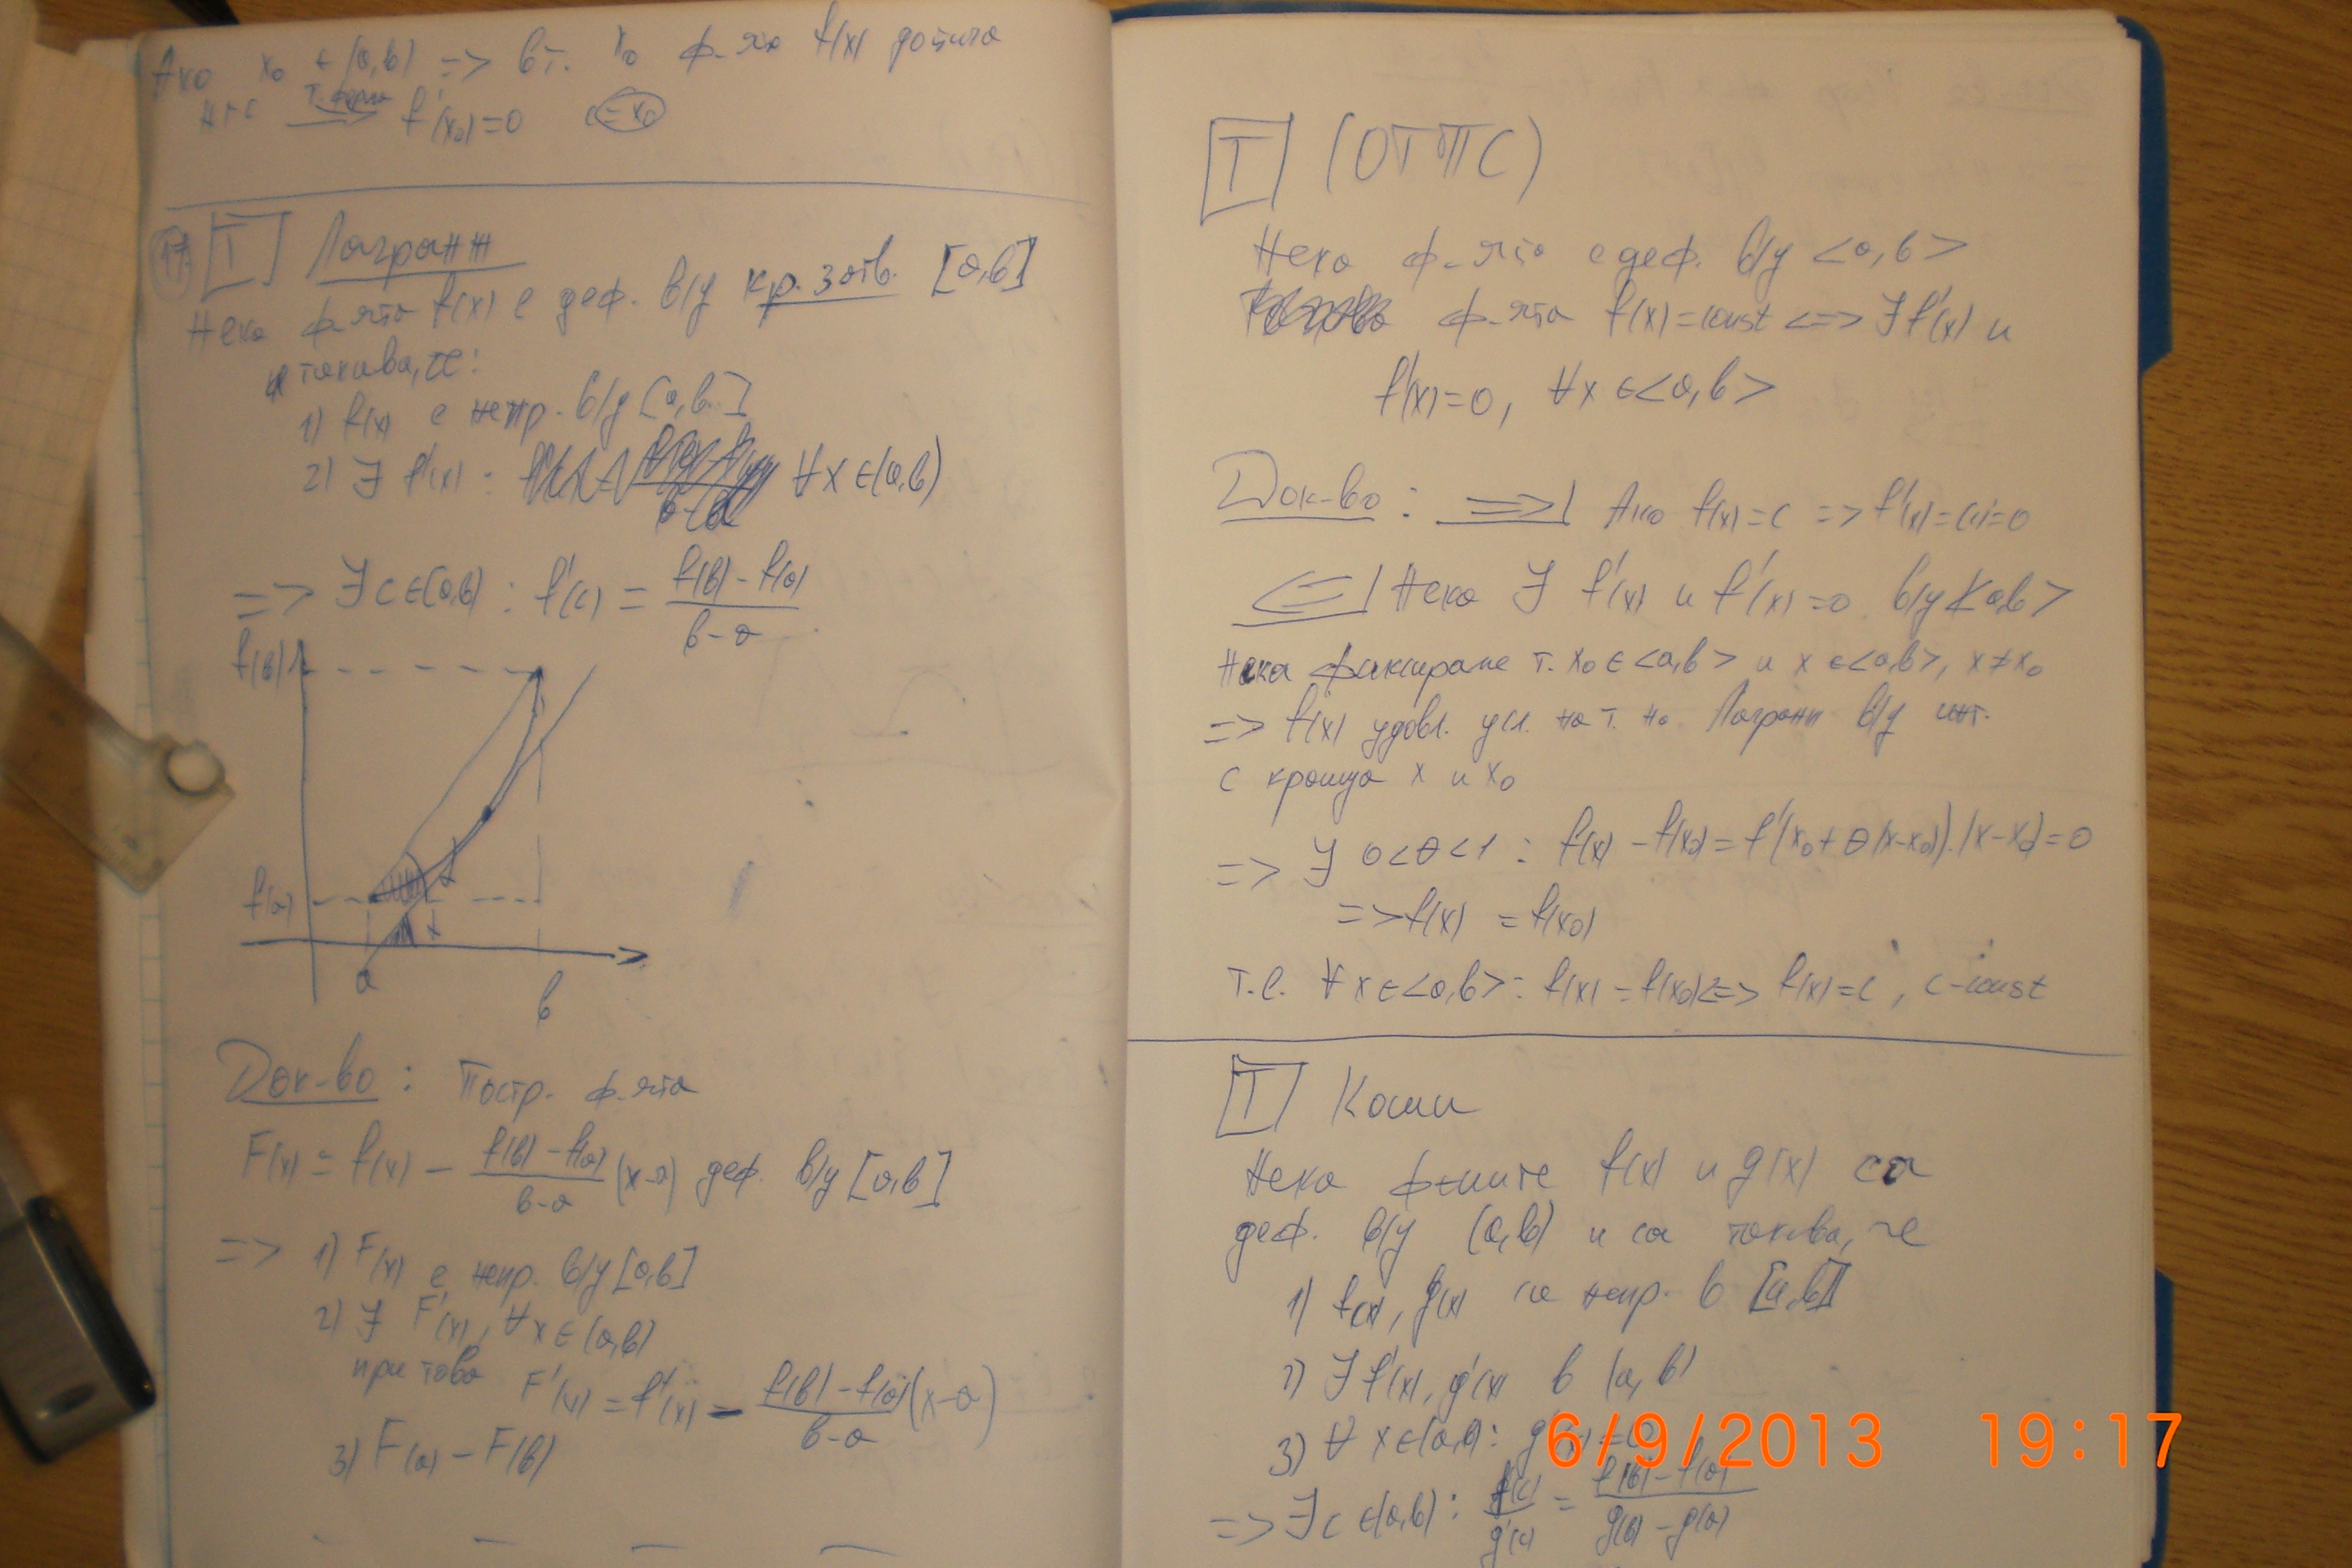 Ако x₀ ∈ (a,b) => в т. x₀ ф-ята f(x) достига
НГС => f'(x₀)=0 c=x₀
17. T Лагранж
Нека ф-ята f(x) е деф. в/у кр. затв. [a,b]
и такива, че:
1) f(x) е непр. в/у [a,b]
2) ∃ f'(x) : ∀x ∈(a,b)
=> ∃ c ∈(a,b) : f'(c) = f(b) - f(a) / b-a
f(b)
f(a)
a
b
Док-во : Постр. ф-ята
F(x) = f(x) - f(b) - f(a) / b-a (x-a) деф. в/у [a,b]
=> 1) F(x) е непр. в/у [a,b]
2) ∃ F'(x), ∀x ∈(a,b)
при това F'(x) = f'(x) - f(b) - f(a) / b-a (x-a)
3) F(a) - F(b)
T (ОТПС)
Нека ф-ята е деф. в/у <a,b>
ф-ята f(x)=const <=> ∃ f'(x) и
f'(x)=0, ∀x ∈<a,b>
Док-во : => | Ако f(x)=c => f'(x)=(c)'=0
<= | Нека ∃ f'(x) и f'(x)=0 в/у <a,b>
Нека фиксираме т. x₀ ∈<a,b> и x ∈<a,b>, x≠x₀
=> f(x) удовл. усл. на т. на Лагранж в/у инт.
с краища x и x₀
=> ∃ 0<θ<1 : f(x) - f(x₀) = f'(x₀+θ(x-x₀)).(x-x₀)=0
=> f(x) = f(x₀)
т.е. ∀x ∈<a,b> : f(x) = f(x₀) <=> f(x)=c, c-const
T Коши
Нека ф-иите f(x) и g(x) са
деф. в/у (a,b) и са такива, че
1) f(x), g(x) са непр. в [a,b]
2) ∃ f'(x), g'(x) в (a,b)
3) ∀ x∈(a,b) :
6/9/2013 19:17
=> ∃ c ∈(a,b) : f'(c) / g'(c) = f(b) - f(a) / g(b) - g(a)